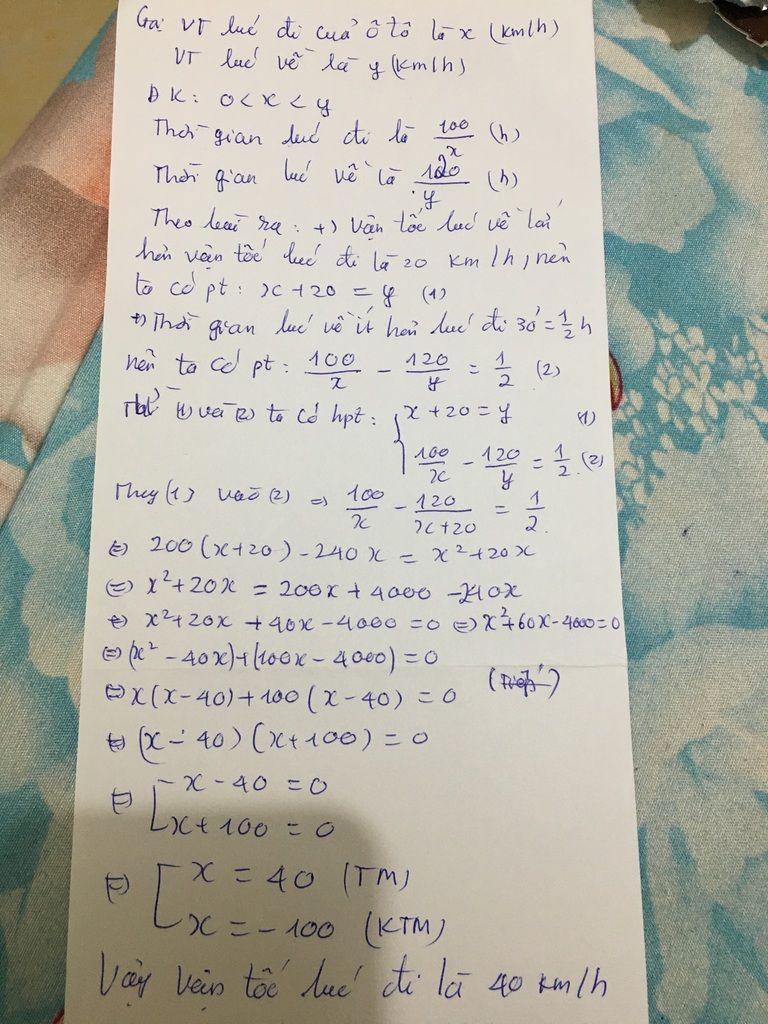 Gọi VT lúc đi của ô tô là x (km/h)
VT lúc về là y (km/h)
ĐK: 0 < x < y
Thời gian lúc đi là 100/x (h)
Thời gian lúc về là 120/y (h)
Theo bài ra: +) Vận tốc lúc về lớn
hơn vận tốc lúc đi là 20 km/h, nên
ta có pt: x + 20 = y (1)
+) Thời gian lúc về ít hơn lúc đi 30' = 1/2 h
nên ta có pt: 100/x - 120/y = 1/2 (2)
Từ (1) và (2) ta có hpt: { x + 20 = y (1)
100/x - 120/y = 1/2 (2)
Thay (1) vào (2) => 100/x - 120/(x+20) = 1/2
<=> 200(x+20) - 240x = x² + 20x
<=> x² + 20x = 200x + 4000 - 240x
<=> x² + 20x + 40x - 4000 = 0 <=> x² + 60x - 4000 = 0
<=> (x² - 40x) + (100x - 4000) = 0
<=> x(x - 40) + 100(x - 40) = 0
<=> (x - 40)(x + 100) = 0
<=> [ x - 40 = 0
x + 100 = 0
<=> [ x = 40 (TM)
x = -100 (KTM)
Vậy vận tốc lúc đi là 40 km/h